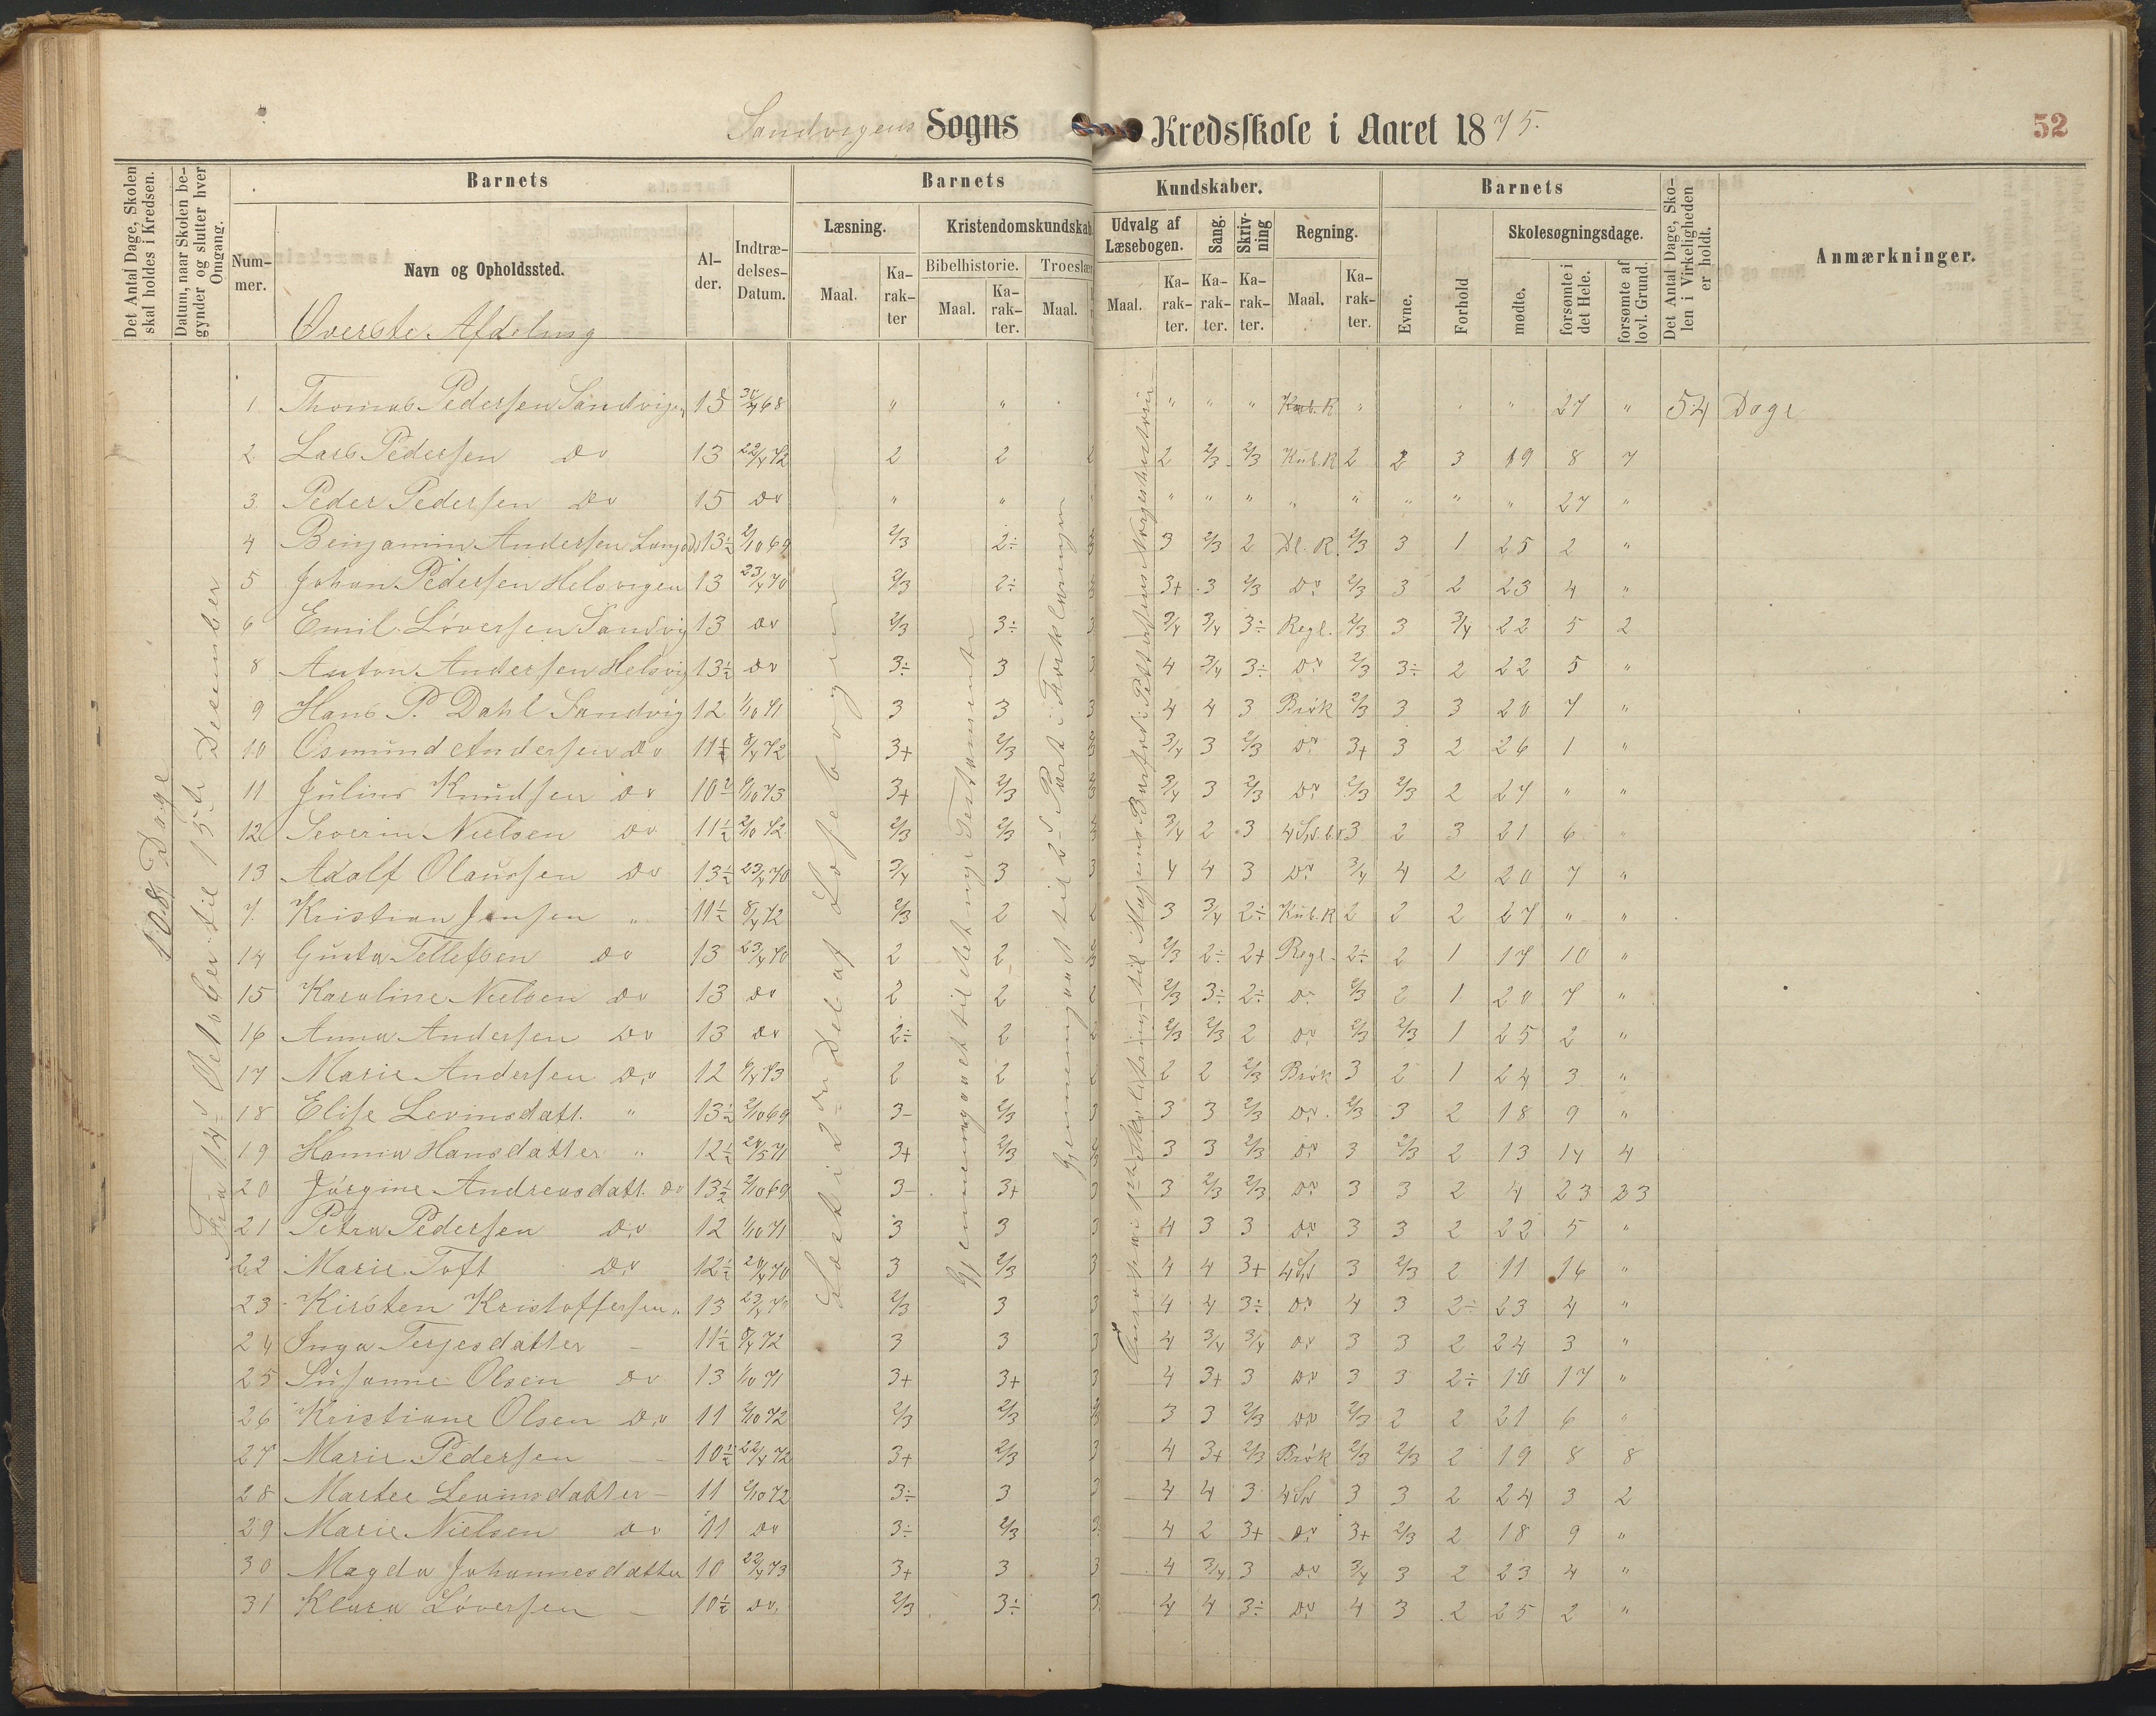 Sandvigens Sogns Kredsskole i Aaret 1875.
52
Det Antal Dage, Skolen skal holdes i Kredsen.
Datum, naar Skolen begynder og slutter hver Omgang.
Barnets
Nummer.
Navn og Opholdssted.
Alder.
Indtrædelses-Datum.
Barnets
Læsning.
Maal.
Karakter
Kristendomskundskab.
Bibelhistorie.
Maal.
Karakter.
Troeslær
Maal.
Kundskaber.
Udvalg af Læsebogen.
Maal.
Karakter.
Sang.
Karakter.
Skrivning
Karakter.
Regning.
Maal.
Karakter.
Barnets
Evne.
Forhold
Skolesøgningsdage.
mødte.
forsømte i det Hele.
forsømte af lovl. Grund.
Det Antal Dage, Skolen i Virkeligheden er holdt.
Anmærkninger.
Øverste Afdeling
108 Dage
Fra 14d Oktober til 15de Desember
Læst i 2den Del af Læsebogen
Gjennemgaaet til det nye Testamente
Gjennemgaaet til 2d Part i Forklaringen
1 Thomas Pedersen Sandvigen 15 30/4 68 " " " " " Kub. R " " " 27 " 54 Dage
2 Lars Pedersen Do 13 22/4 72 2 2 2 2 2/3 2/3 Kub. R 2 2 3 19 8 7
3 Peder Pedersen Do 15 Do " " " " " " " " " " 27 "
4 Benjamin Andersen 13½ 2/10 69 2/3 2÷ 3 2/3 2 Dl. R. 2/3 3 1 25 2 "
5 Johan Pedersen Helsvigen 13 23/4 70 2/3 2÷ 3+ 3 2/3 Do 2/3 3 2 23 4 "
6 Emil Løversen Sandvig 13 Do 2/3 3÷ 3 3/4 3/4 3÷ Regl. 2/3 3 3/4 22 5 2
8 Anton Andersen Helsvig 13½ Do 3÷ 3 3 4 3/4 3÷ Do 2/3 3÷ 2 22 5 "
9 Hans P. Dahl Sandvig 12 1/10 71 3 3 3 4 4 3 Brøk 2/3 3 3 20 7 "
10 Osmund Andersen Do 11½ 8/4 72 3+ 2/3 3/4 3 2/3 Do 3+ 3 2 26 1 "
11 Julius Knudsen Do 10½ 1/10 73 3+ 2/3 3/4 3 2/3 Do 2/3 2/3 2 27 " "
12 Severin Nielsen Do 11½ 2/10 72 2/3 2/3 3/4 2 3 3 2 3 21 6 "
13 Adolf Olaussen Do 13½ 23/4 70 3/4 3 3 4 4 3 Do 3/4 4 2 20 7 "
7. Kristian Jensen " 11½ 8/4 72 2/3 2 2 3 3/4 2÷ Kub. R 2 2 2 27 " "
14 Gusta Tellefsen Do 13 23/4 70 2 2 2/3 2÷ 2+ Regl. 2÷ 2 1 17 10 "
15 Karoline Nielsen Do 13 Do 2 2 2 2/3 3÷ 2÷ Do 2/3 2 1 20 7 "
16 Anna Andersen Do 13 Do 2÷ 2 2 2/3 2/3 2 Do 2/3 2/3 1 25 2 "
17 Marie Andersen Do 12 6/4 73 2 2 2 2 2 2/3 Brøk 3 2 1 24 3 "
18 Elise Levinsdatt. " 13½ 2/10 69 3- 2/3 3 3 3 2/3 Do 2/3 3 2 18 9 "
19 Hanna Hansdatter " 12½ 24/5 71 3+ 2/3 3 3 2/3 Do 3 2/3 2 13 14 4
20 Jørgine Andreasdatt. Do 13½ 2/10 69 3- 3+ 3 3 2/3 2/3 Do 3 3 2 4 23 23
21 Petra Pedersen Do 12 1/10 71 3 3 3 4 3 3 Do 3 3 2 22 5 "
22 Marie Toft Do 12½ 24/4 70 3 2/3 3 4 4 3+ 3 2/3 2 11 16 "
23 Kirsten Kristoffersen " 13 23/4 70 2/3 3 3 4 4 3÷ Do 4 3 2÷ 23 4 "
24 Inga Terjesdatter - 11½ 8/4 72 3 3 3 4 3/4 3/4 Do 3 3 2 24 3 "
25 Susanne Olsen Do 13 1/10 71 3+ 3+ 3 4 3+ 3 Do 3 3 2÷ 10 17 "
26 Kristiane Olsen Do 11 2/10 72 2/3 2/3 3 3 2/3 Do 2/3 2 2 21 6 "
27 Marie Pedersen - 10½ 22/4 72 3+ 2/3 3 4 3+ 2/3 Brøk 2/3 2/3 2 19 8 8
28 Marter Levinsdatter - 11 2/10 72 3÷ 3 3 4 4 3 3 3 2 24 3 2
29 Marie Nielsen Do 11 Do 3÷ 2/3 3 4 2 3+ Do 3+ 2/3 2 18 9 "
30 Magda Johannesdatter 10 22/4 73 3+ 3 3 4 3/4 3 Do 3/4 3 2 23 4 "
31 Klara Løversen - 10½ Do 2/3 3÷ 3 4 4 3÷ Do 4 3 2 25 2 "